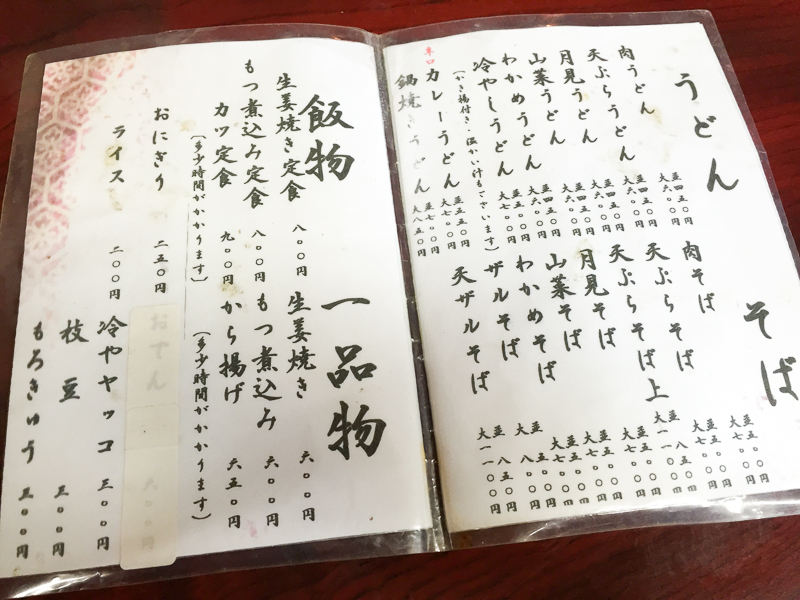 うどん
肉うどん 並四五〇円 大六〇〇円
天ぷらうどん 並四五〇円 大六〇〇円
月見うどん 並四五〇円 大六〇〇円
山菜うどん 並四五〇円 大六〇〇円
わかめうどん 並四五〇円 大六〇〇円
冷やしうどん 大七〇〇円
(かき揚付き・温かい汁もございます)
辛口カレーうどん 並五五〇円 大七〇〇円
鍋焼きうどん 並七〇〇円 大八五〇円
そば
肉そば 並五五〇円 大七〇〇円
天ぷらそば 並五五〇円 大七〇〇円
天ぷらそば上 並八五〇円 大一一〇〇円
月見そば 並五五〇円 大七〇〇円
山菜そば 並五五〇円 大七〇〇円
わかめそば 並五五〇円 大七〇〇円
ザルそば
天ザルそば 並八五〇円 大一一〇〇円
飯物
生姜焼き定食 八〇〇円
もつ煮込み定食 八〇〇円
カツ定食 九〇〇円
(多少時間がかかります)
おにぎり 二五〇円
ライス 二〇〇円
一品物
生姜焼き 六〇〇円
もつ煮込み 六〇〇円
から揚げ 六五〇円
(多少時間がかかります)
おでん 六〇〇円
冷ヤヤッコ 三〇〇円
枝豆 三〇〇円
もろきゅう 三〇〇円